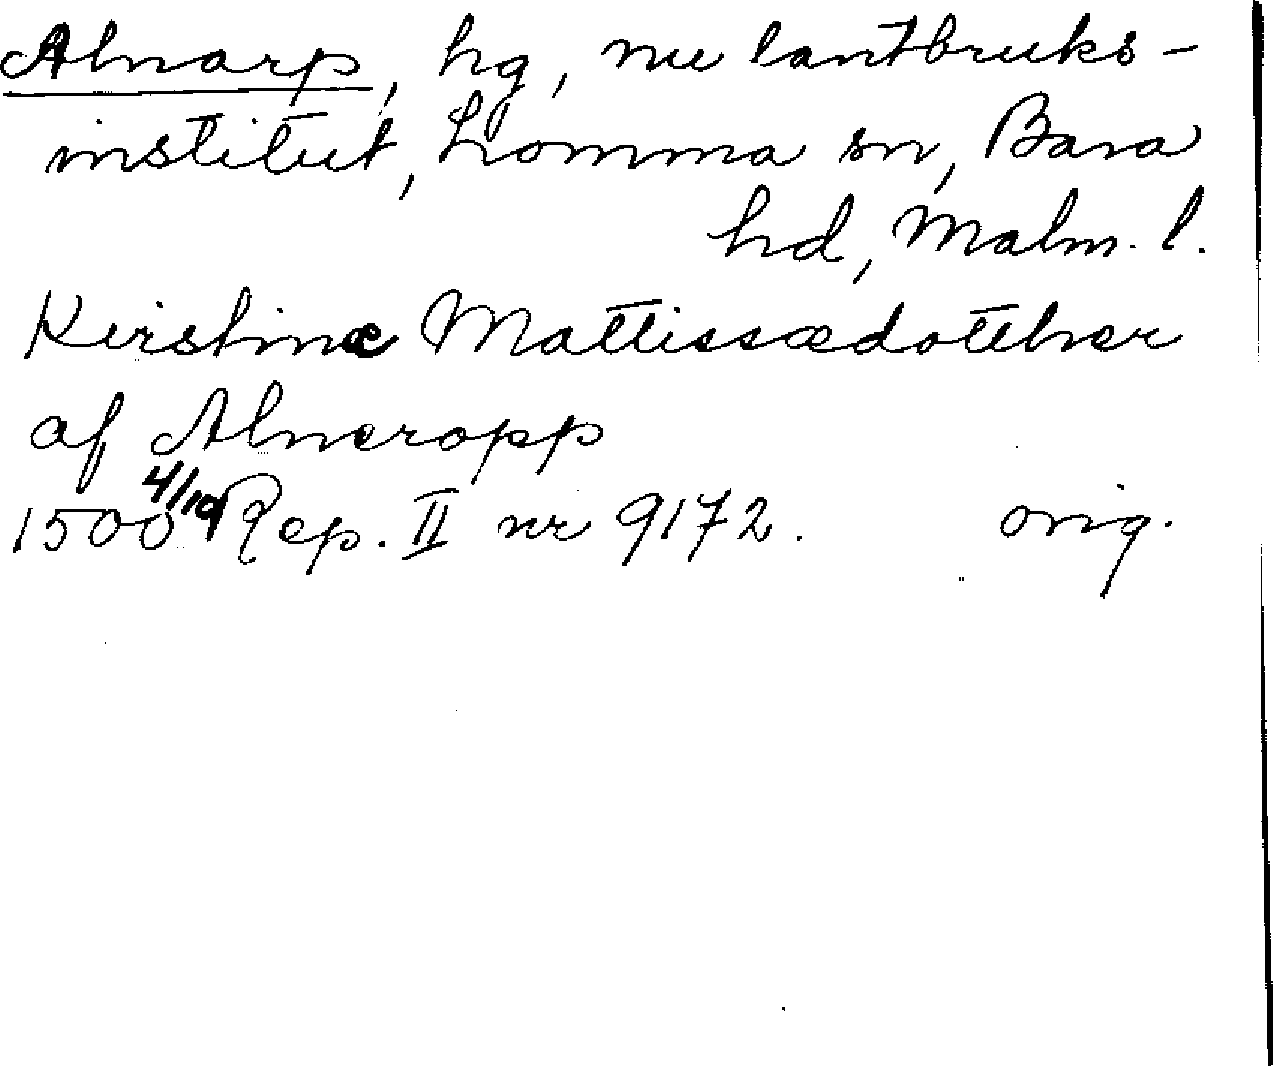 Alnarp, hg, nu lantbruks-
institut, Lomma sn, Bara
hd, Malm. l.
Kirstinæ Mattissædotther
af Alneropp
1500 4/10 Rep. II nr 9172. orig.